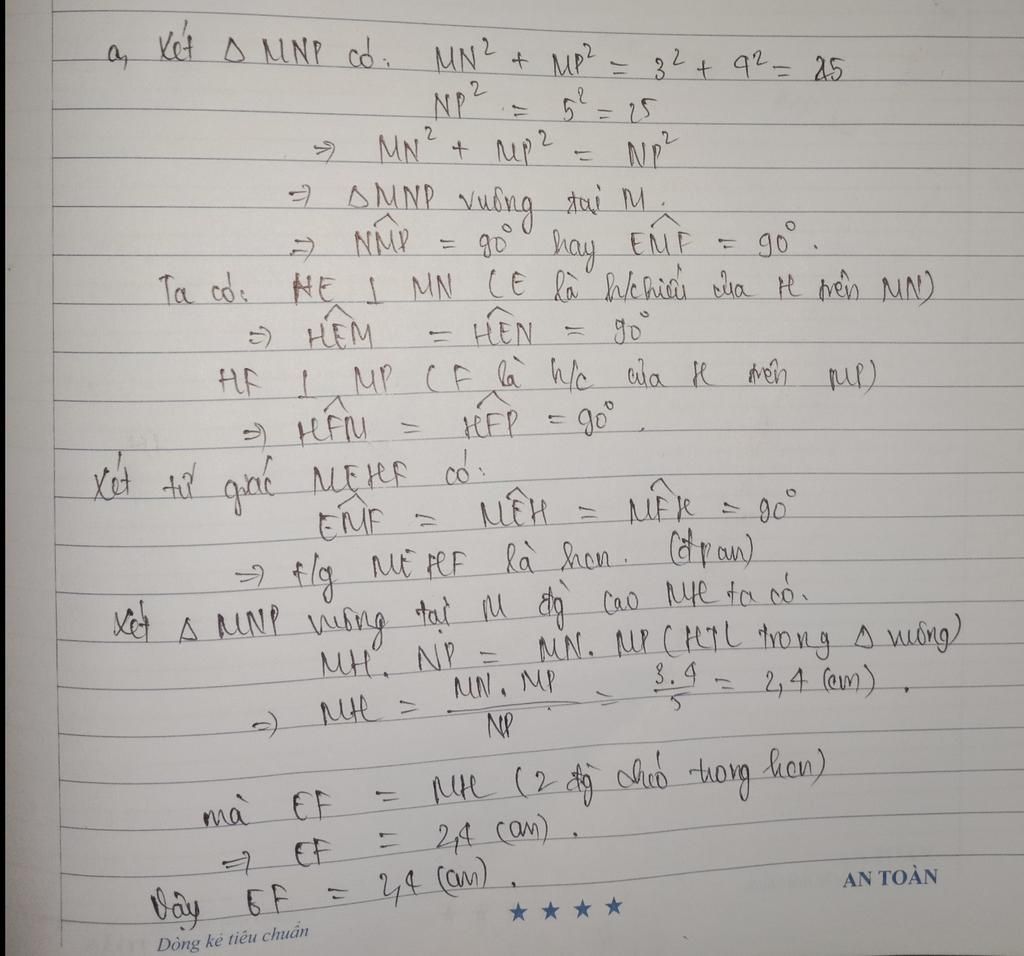 a, Xét Δ MNP có: MN² + MP² = 3² + 4² = 25
NP² = 5² = 25
=> MN² + MP² = NP²
=> Δ MNP vuông tại M.
=> NMP = 90° hay EMF = 90°.
Ta có: HE ⊥ MN (E là h/chiếu của H trên MN)
=> HEM = HEN = 90°
HF ⊥ MP (F là h/c của H trên MP)
=> HFM = HFP = 90°.
Xét tứ giác MEHF có:
EMF = MEH = MFH = 90°
=> t/g MEHF là hcn. (đpcm)
Xét Δ MNP vuông tại M đg cao MH ta có:
MH. NP = MN. MP (HTL trong Δ vuông)
=> MH = MN. MP / NP = 3.4 / 5 = 2,4 (cm).
mà EF = MH (2 đg chéo trong hcn)
=> EF = 2,4 (cm).
Vậy EF = 2,4 (cm).
AN TOÀN
Dòng kẻ tiêu chuẩn